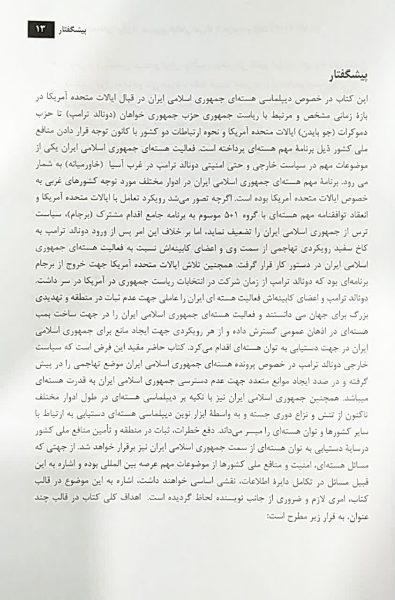 پیشگفتار ۱۳
پیشگفتار
این کتاب در خصوص دیپلماسی هسته‌ای جمهوری اسلامی ایران در قبال ایالات متحده آمریکا در
بازۀ زمانی مشخص و مرتبط با ریاست جمهوری حزب جمهوری خواهان (دونالد ترامپ) تا حزب
دموکرات (جو بایدن) ایالات متحده آمریکا و نحوه ارتباطات دو کشور با کانون توجه قرار دادن منافع
ملی کشور ذیل برنامۀ مهم هسته‌ای پرداخته است. فعالیت هسته‌ای جمهوری اسلامی ایران یکی از
موضوعات مهم در سیاست خارجی و حتی امنیتی دونالد ترامپ در غرب آسیا (خاورمیانه) به شمار
می رود. برنامۀ مهم هسته‌ای جمهوری اسلامی ایران در ادوار مختلف مورد توجه کشورهای غربی به
خصوص ایالات متحده آمریکا بوده است. اگرچه تصور می‌شد رویکرد تعامل با ایالات متحده آمریکا و
انعقاد توافقنامه مهم هسته‌ای با گروه ۵+۱ موسوم به برنامه جامع اقدام مشترک (برجام)، سیاست
ترس از جمهوری اسلامی ایران را تضعیف نماید، اما بر خلاف این امر پس از ورود دونالد ترامپ به
کاخ سفید رویکردی تهاجمی از سمت وی و اعضای کابینه‌اش نسبت به فعالیت هسته‌ای جمهوری
اسلامی ایران در دستور کار قرار گرفت. همچنین تلاش ایالات متحده آمریکا جهت خروج از برجام
برنامه‌ای بود که دونالد ترامپ از زمان شرکت در انتخابات ریاست جمهوری در آمریکا در سر داشت.
دونالد ترامپ و اعضای کابینه‌اش فعالیت هسته ای ایران را عاملی جهت عدم ثبات در منطقه و تهدیدی
بزرگ برای جهان می دانستند و فعالیت هسته‌ای جمهوری اسلامی ایران را در جهت ساخت بمب
هسته‌ای در اذهان عمومی گسترش داده و از هر رویکردی جهت ایجاد مانع برای جمهوری اسلامی
ایران در جهت دستیابی به توان هسته‌ای اقدام می‌کرد. کتاب حاضر مقید این فرض است که سیاست
خارجی دونالد ترامپ در خصوص پرونده هسته‌ای جمهوری اسلامی ایران موضع تهاجمی را در پیش
گرفته و در صدد ایجاد موانع متعدد جهت عدم دسترسی جمهوری اسلامی ایران به قدرت هسته‌ای
میباشد. همچنین جمهوری اسلامی ایران نیز با تکیه بر دیپلماسی هسته‌ای در طول ادوار مختلف
تاکنون از تنش و نزاع دوری جسته و به واسطۀ ابزار نوین دیپلماسی هسته‌ای دستیابی به ارتباط با
سایر کشورها و توان هسته‌ای را میسر می‌داند. دفع خطرات، ثبات در منطقه و تأمین منافع ملی کشور
درسایۀ دستیابی به توان هسته‌ای از سمت جمهوری اسلامی ایران نیز برقرار خواهد شد. از جهتی که
مسائل هسته‌ای، امنیت و منافع ملی کشورها از موضوعات مهم عرصه بین المللی بوده و اشاره به این
قبیل مسائل در تکامل دایرۀ اطلاعات، نقشی اساسی خواهند داشت، اشاره به این موضوع در قالب
کتاب، امری لازم و ضروری از جانب نویسنده لحاظ گردیده است. اهداف کلی کتاب در قالب چند
عنوان، به قرار زیر مطرح است: